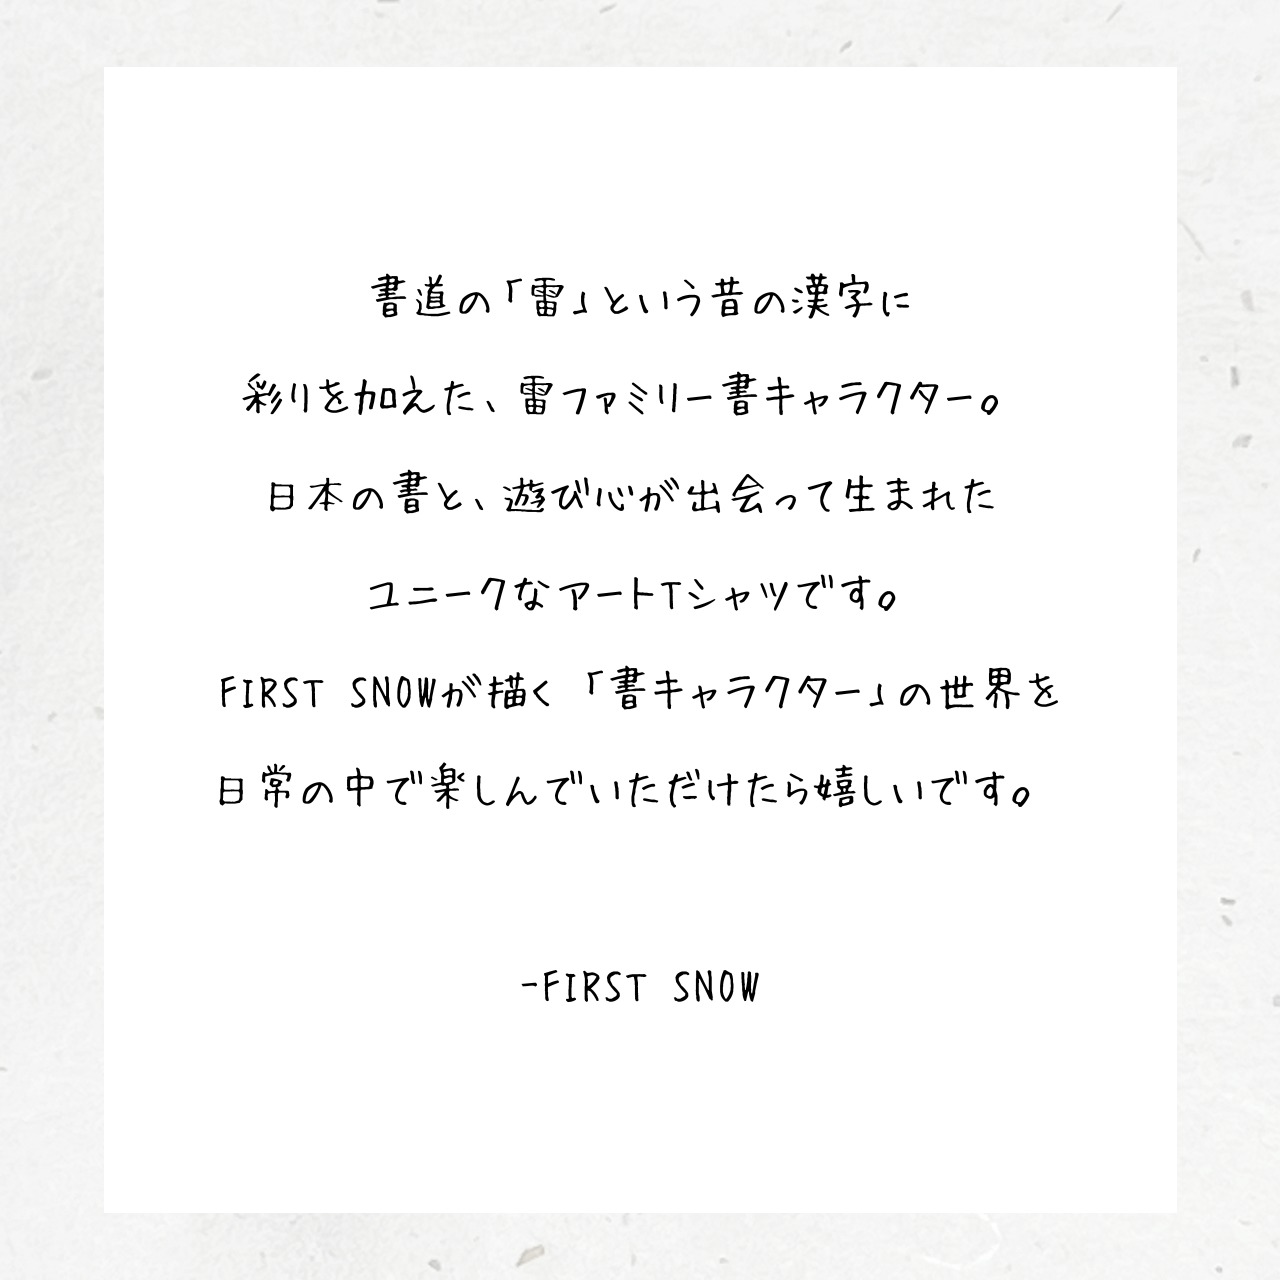 書道の「雷」という昔の漢字に
彩りを加えた、雷ファミリー書キャラクター。
日本の書と、遊び心が出会って生まれた
ユニークなアートTシャツです。
FIRST SNOWが描く「書キャラクター」の世界を
日常の中で楽しんでいただけたら嬉しいです。
-FIRST SNOW